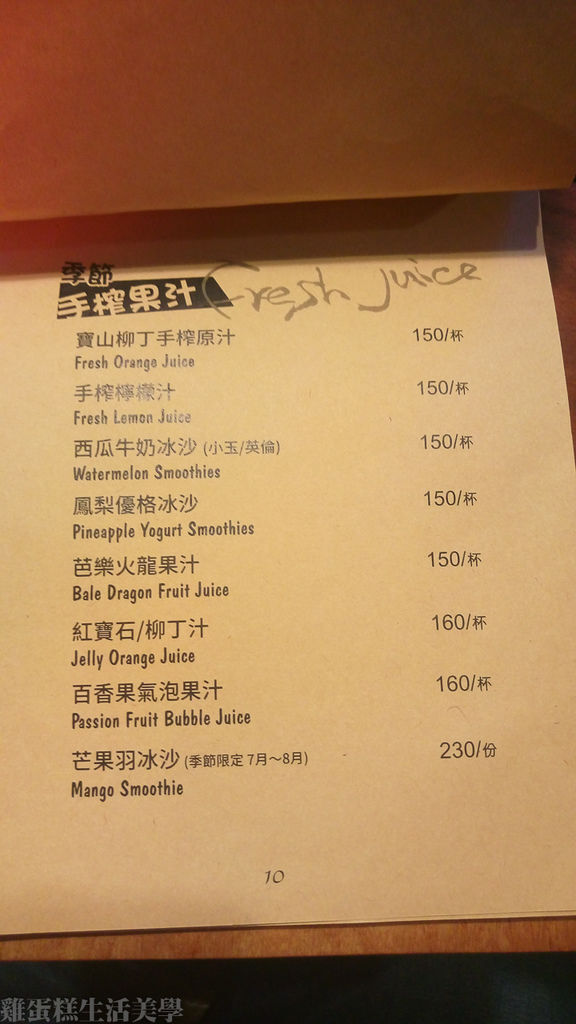 季節
手榨果汁 Fresh Juice
寶山柳丁手榨原汁 150/杯
Fresh Orange Juice
手榨檸檬汁 150/杯
Fresh Lemon Juice
西瓜牛奶冰沙 (小玉/英倫) 150/杯
Watermelon Smoothies
鳳梨優格冰沙 150/杯
Pineapple Yogurt Smoothies
芭樂火龍果汁 150/杯
Bale Dragon Fruit Juice
紅寶石/柳丁汁 160/杯
Jelly Orange Juice
百香果氣泡果汁 160/杯
Passion Fruit Bubble Juice
芒果羽冰沙 (季節限定 7月～8月) 230/份
Mango Smoothie
10
雞蛋糕生活美學